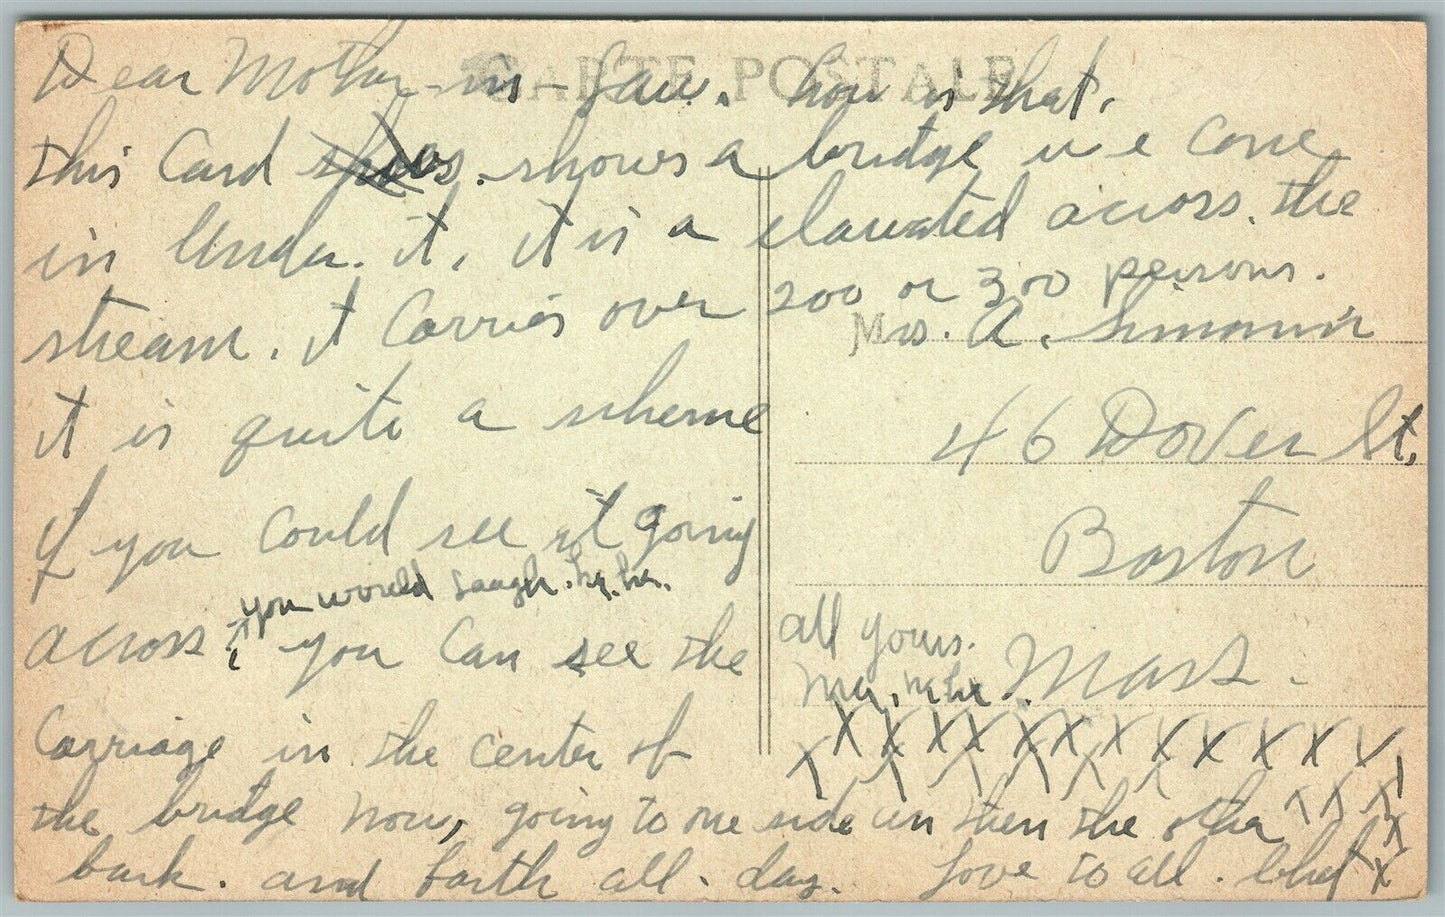 CARTE POSTALE
Dear Mother-in-Law. how is that.
this Card shows. shows a bridge we come
in Under. it, it is a elavated across. the
stream. it Carries over 200 or 300 persons.
it is quite a scheme
if you could see it going
you would laugh. ha. ha.
across you Can see the
Carriage in the center of
the bridge now, going to one side un then the other
back. and forth all. day. Love to all. Chef
Mrs. A. Simmonir
46 Dover St.
Boston
Mass.
all yours.
ha. ha
X X X X X X X X X X X X
X X X X X X
X X X
X
X